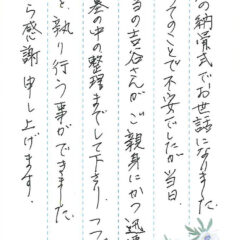 の納骨式でお世話になりました
そのことで不安でしたが当日
当の吉谷さんがご親身にかつ迅速
墓の中の整理までして下さり、つつ
を執り行う事ができました
ら感謝申し上げます。